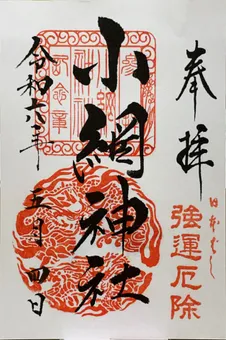 奉拝
日本ばし
強運厄除
小網神社
令和六年
五月四日